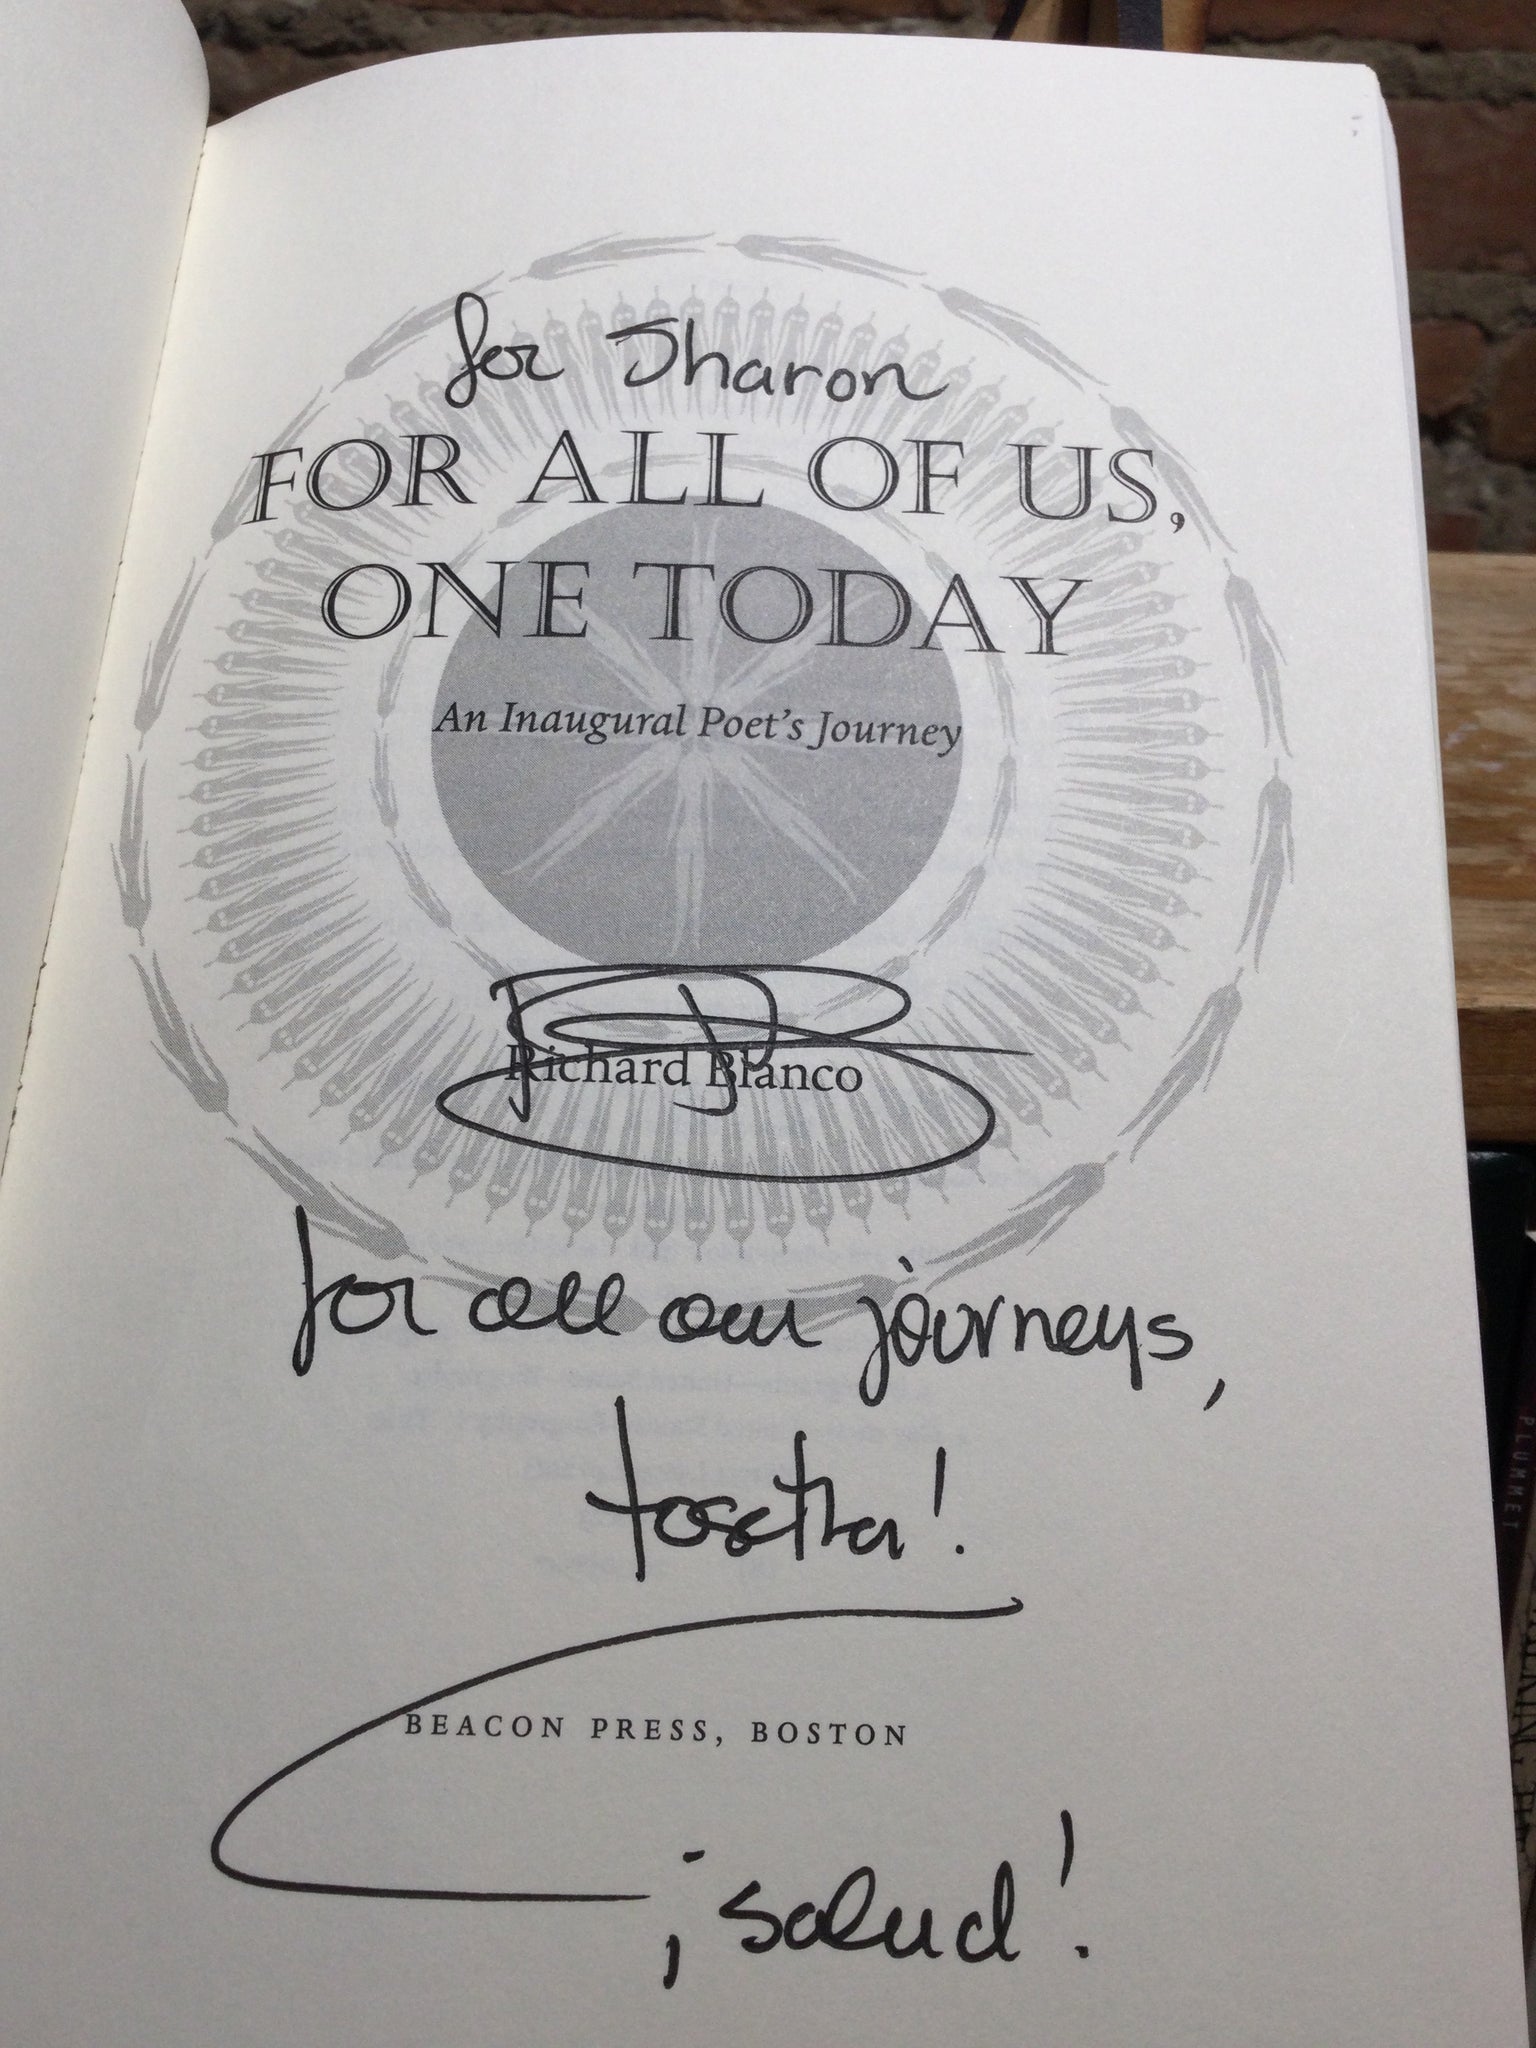 for Sharon
FOR ALL OF US,
ONE TODAY
An Inaugural Poet's Journey
Richard Blanco
for all our journeys,
together!
BEACON PRESS, BOSTON
¡salud!
PLUMMET